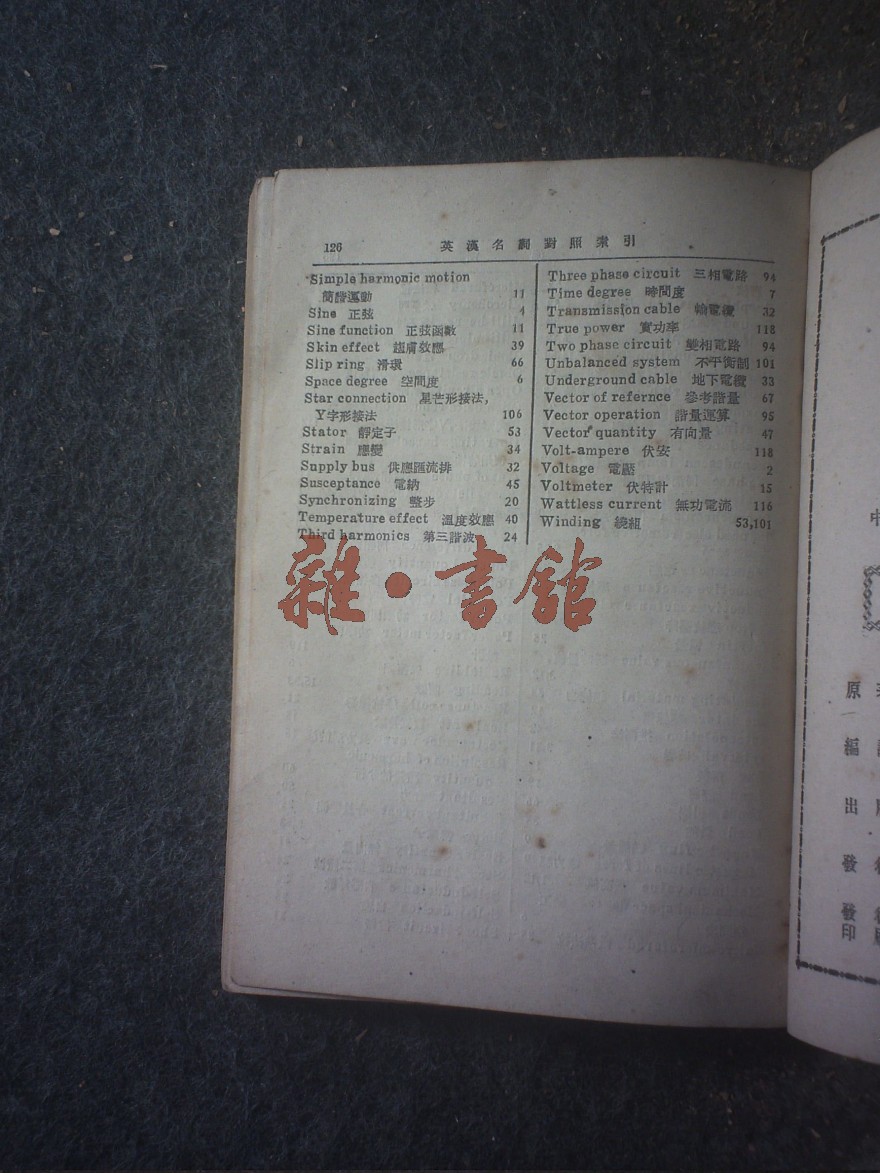 126
英漢名詞對照索引
Simple harmonic motion
簡諧運動 11
Sine 正弦 4
Sine function 正弦函數 11
Skin effect 趨膚效應 39
Slip ring 滑環 66
Space degree 空間度 6
Star connection 星芒形接法,
Y字形接法 106
Stator 靜定子 53
Strain 應變 34
Supply bus 供應匯流排 32
Susceptance 電納 45
Synchronizing 整步 20
Temperature effect 溫度效應 40
Third harmonics 第三諧波 24
Three phase circuit 三相電路 94
Time degree 時間度 7
Transmission cable 輸電纜 32
True power 實功率 118
Two phase circuit 雙相電路 94
Unbalanced system 不平衡制 101
Underground cable 地下電纜 33
Vector of refernce 參考諧量 67
Vector operation 諧量運算 95
Vector quantity 有向量 47
Volt-ampere 伏安 118
Voltage 電壓 2
Voltmeter 伏特計 15
Wattless current 無功電流 116
Winding 繞組 53,101
雜•書館
中
原
編
出
發
發
印